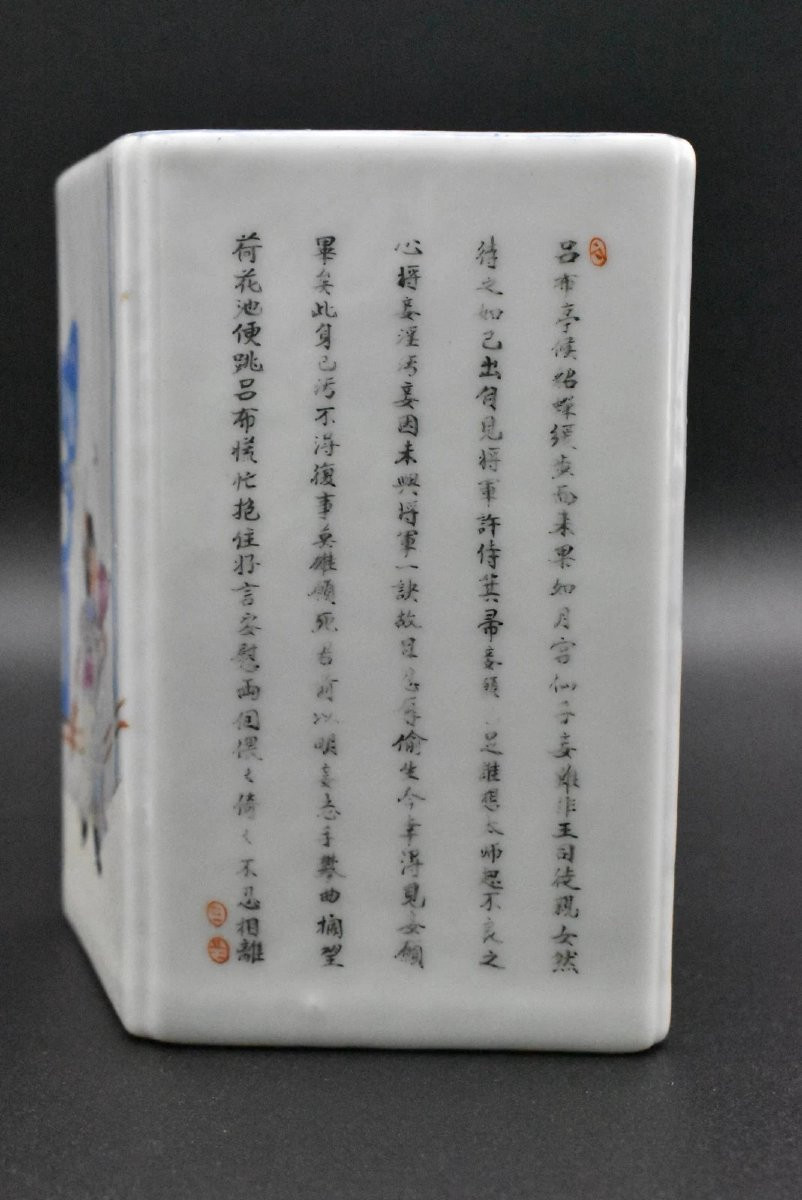 呂布亭候貂蟬緩步而来果如月宮仙子妾雖非王司徒親女然
待之如己出自見将軍許侍箕帚妾願已足誰想太师起不良之
心将妾淫污妾因未與将軍一訣故且忍辱偷生今幸得見妾願
畢矣此身已污不得復事英雄願死君前以明妾志手攀曲欄望
荷花池便跳呂布慌忙抱住好言安慰兩個偎々倚々不忍相離